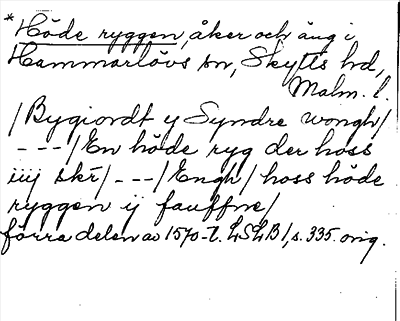 *Höde ryggen, åker och äng i
Hammarlövs sn, Skytts hd,
Malm. l.
/Bygiordt y Syndre wongh/
---/En höde ryg der hoss
iiij skr/---/Engh/ hoss höde
ryggen ij fauffne/
förra delen av 1570-t. LSLB 1, s. 335. orig.